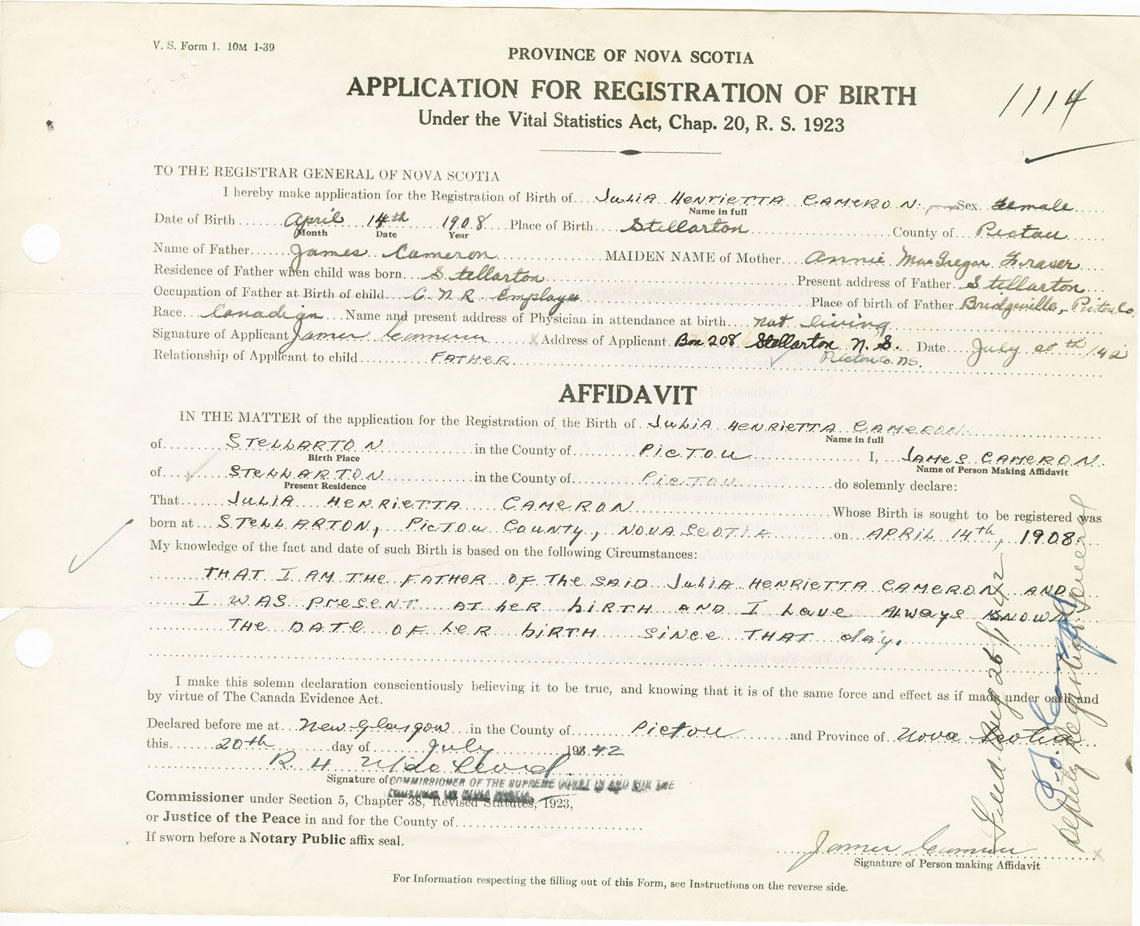 V. S. Form 1. 10M 1-39
PROVINCE OF NOVA SCOTIA
APPLICATION FOR REGISTRATION OF BIRTH
1114
Under the Vital Statistics Act, Chap. 20, R. S. 1923
TO THE REGISTRAR GENERAL OF NOVA SCOTIA
I hereby make application for the Registration of Birth of JULIA HENRIETTA CAMERON Sex Female
Name in full
Date of Birth April 14th 1908 Place of Birth Stellarton County of Pictou
Month Date Year
Name of Father James Cameron MAIDEN NAME of Mother Annie MacGregor Fraser
Residence of Father when child was born Stellarton Present address of Father Stellarton
Occupation of Father at Birth of child C.N.R. Employee Place of birth of Father Bridgeville, Pictou Co.
Race Canadian Name and present address of Physician in attendance at birth not living
Signature of Applicant James Cameron X Address of Applicant Box 208 Stellarton N.S. Date July 20th /42
Relationship of Applicant to child FATHER Pictou Co. N.S.
AFFIDAVIT
IN THE MATTER of the application for the Registration of the Birth of JULIA HENRIETTA CAMERON
Name in full
of STELLARTON in the County of PICTOU I, JAMES CAMERON
Birth Place Name of Person Making Affidavit
of STELLARTON in the County of PICTOU do solemnly declare:
Present Residence
That JULIA HENRIETTA CAMERON Whose Birth is sought to be registered was
born at STELLARTON, PICTOU COUNTY, NOVA SCOTIA on APRIL 14th, 1908
My knowledge of the fact and date of such Birth is based on the following Circumstances:
THAT I AM THE FATHER OF THE SAID JULIA HENRIETTA CAMERON AND
I WAS PRESENT AT HER BIRTH AND I HAVE ALWAYS KNOWN
THE DATE OF HER BIRTH SINCE THAT day.
I make this solemn declaration conscientiously believing it to be true, and knowing that it is of the same force and effect as if made under oath and
by virtue of The Canada Evidence Act.
Declared before me at New Glasgow in the County of Pictou and Province of Nova Scotia
this 20th day of July 1942
R H
Signature of COMMISSIONER OF THE SUPREME COURT IN AND FOR THE
Commissioner under Section 5, Chapter 38, Revised Statutes, 1923,
or Justice of the Peace in and for the County of
If sworn before a Notary Public affix seal.
James Cameron X
Signature of Person making Affidavit
For Information respecting the filling out of this Form, see Instructions on the reverse side.
Filed. Aug 26/42
Deputy Registrar General